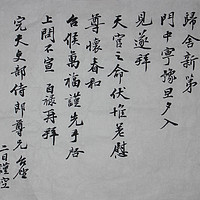 歸舍新第
門中寧豫旦夕入
見遂拜
天官之命伏惟差慰
尊懷春和
台候萬福謹先手啓
上問不宣 百祿再拜
完夫吏部侍郎尊兄台座
二日謹空